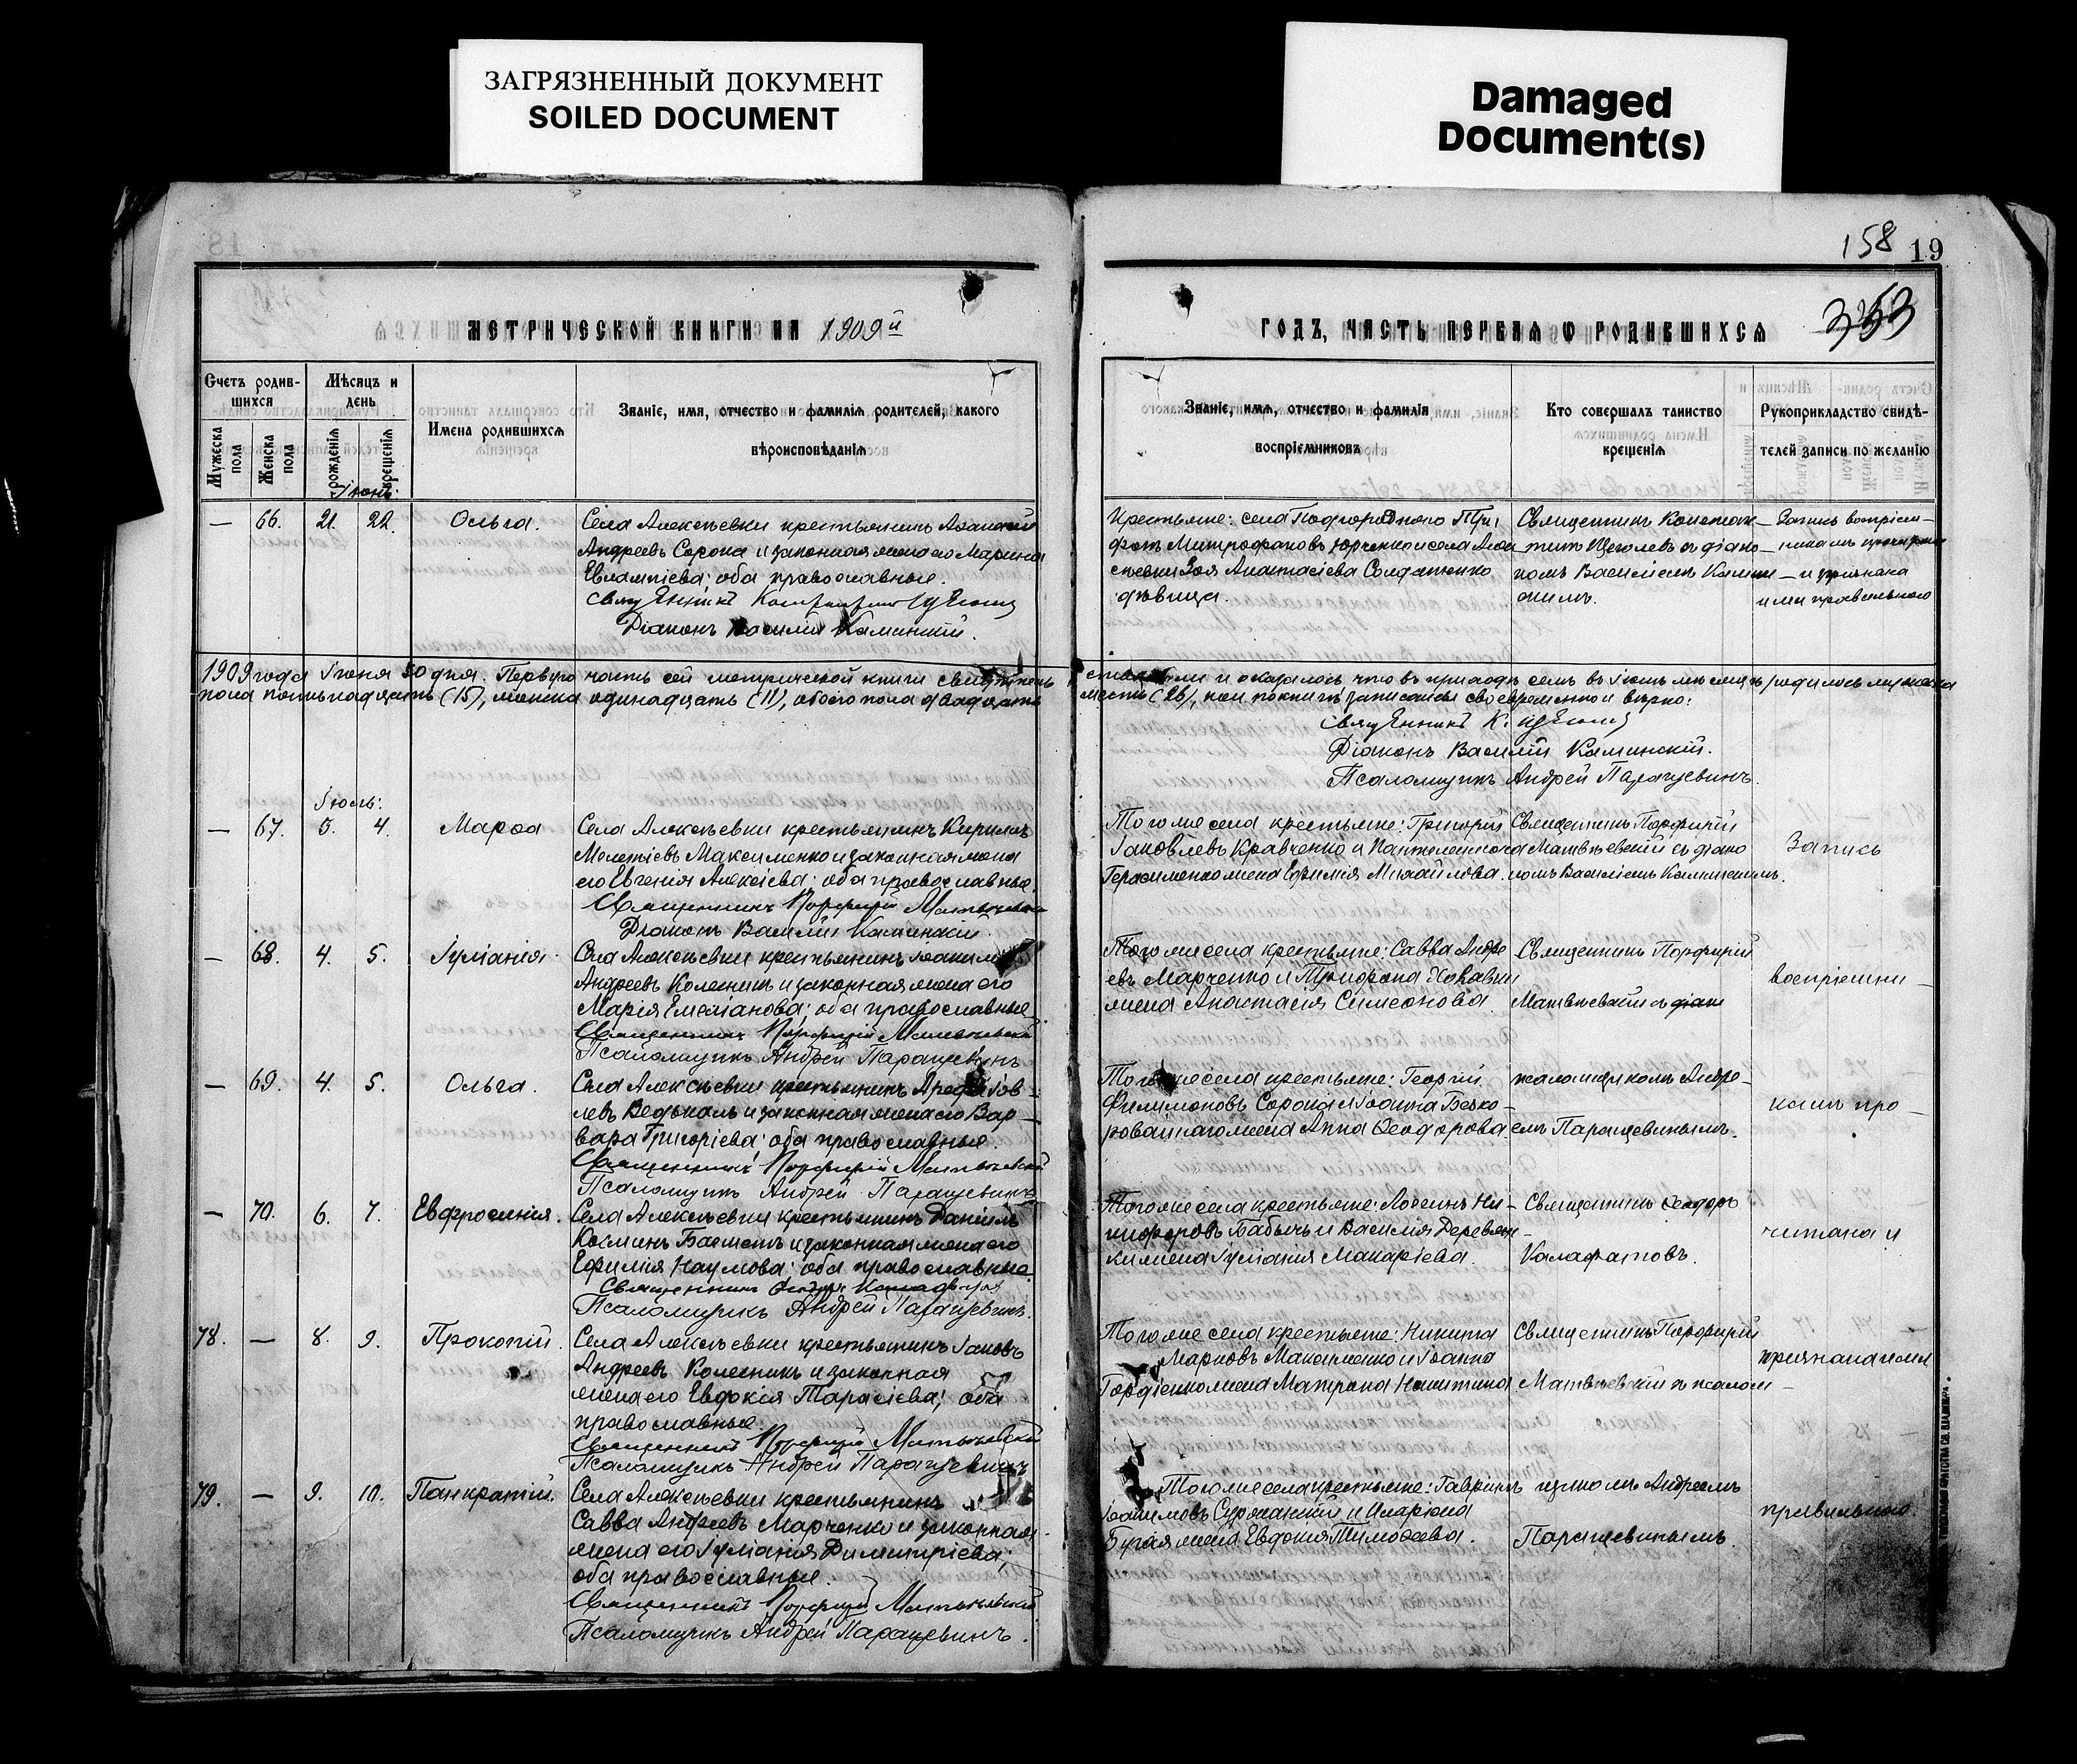 ЗАГРЯЗНЕННЫЙ ДОКУМЕНТ
SOILED DOCUMENT
Damaged
Document(s)
158 19
353
МЕТРИЧЕСКОЙ КНИГИ НА 1909й
Счетъ родив-
шихся
Мужеска пола
Женска пола
Мѣсяцъ и
день
рожденія
крещенія
Имена родившихся
Званіе, имя, отчество и фамилія родителей, какого
вѣроисповѣданія
Іюнь:
— 66. 21. 22. Ольга.
Села Алексѣевки крестьянинъ Аѳанасій
Андреевъ Сорока и законная жена его Марина
Евлампіева; оба православные.
Священникъ Константинъ Щеголевъ
Діаконъ Василій Каминскій.
1909 года Іюня 30 дня. Первую часть сей метрической книги
пола пятьнадцать (15), женска одинадцать (11), обоего пола двадцать
Іюль:
— 67. 3. 4. Марѳа
Села Алексѣевки крестьянинъ Кириллъ
Мелетіевъ Максименко и законная жена
его Евгенія Алексіева; оба православные.
Священникъ Порфирій Матвѣевскій
Діаконъ Василій Каминскій.
— 68. 4. 5. Іуліанія.
Села Алексѣевки крестьянинъ Іоакимъ
Андреевъ Колесникъ и законная жена его
Марія Емеліанова; оба православные.
Священникъ Порфирій Матвѣевскій
Псаломщикъ Андрей Паращевинъ
— 69. 4. 5. Ольга.
Села Алексѣевки крестьянинъ
левъ Ведькалъ и законная жена его Вар-
вара Григоріева; оба православные.
Священникъ Порфирій Матвѣевскій
Псаломщикъ Андрей Паращевинъ
— 70. 6. 7. Евфросинія.
Села Алексѣевки крестьянинъ Даніилъ
Косминъ и законная жена его
Ефимія Наумова; оба православные.
Священникъ Ѳеодоръ Калафатовъ
Псаломщикъ Андрей Паращевинъ.
78. — 8. 9. Прокопій.
Села Алексѣевки крестьянинъ Іаковъ
Андреевъ Колесникъ и законная
жена его Евдокія Тарасіева; оба
православные.
Священникъ Порфирій Матвѣевскій
Псаломщикъ Андрей Паращевинъ
79. — 9. 10. Панкратій.
Села Алексѣевки крестьянинъ
Савва Андреевъ Марченко и законная
жена его Іуліанія Димитріева;
оба православные.
Священникъ Порфирій Матвѣевскій
Псаломщикъ Андрей Паращевинъ.
ГОДЪ, ЧАСТЬ ПЕРВАЯ О РОДИВШИХСЯ
Званіе, имя, отчество и фамилія
воспріемниковъ
Кто совершалъ таинство
крещенія
Рукоприкладство свидѣ-
телей записи по желанію
Крестьяне: села Подгороднаго Три-
фонъ Митрофановъ Юрченко и села Алек-
сѣевки Зоя Анастасіева Солдатенко
дѣвица.
Священникъ Констан-
тинъ Щеголевъ съ діако-
номъ Василіемъ Камин-
скимъ.
Запись воспріем-
никамъ прочитана
и признана
ими правильною
и оказалось что въ приходѣ семъ въ Іюнѣ мѣсяцѣ родилось мужеска
шесть (26), кои по книгѣ записаны своевременно и вѣрно:
Священникъ К. Щеголевъ
Діаконъ Василій Каминскій.
Псаломщикъ Андрей Паращевинъ.
Того же села крестьяне: Григорій
Іаковлевъ Кравченко и Пантелеимона
Герасименко жена Ефимія Михайлова.
Священникъ Порфирій
Матвѣевскій съ діако-
номъ Василіемъ Каминскимъ.
Запись
Того же села крестьяне: Савва Андре-
евъ Марченко и Трифона
жена Анастасія Симеонова.
Священникъ Порфирій
Матвѣевскій съ
воспріемни-
Того же села крестьяне: Георгій
Филимоновъ Сорока и Іоанна Безко-
ровайнаго жена Анна Ѳеодорова.
псаломщикомъ Андре-
емъ Паращевинымъ.
камъ про-
Того же села крестьяне: Логгинъ Ни-
кифоровъ Бабычъ и Василія Деревян-
ки жена Іуліанія Макаріева.
Священникъ Ѳеодоръ
Калафатовъ.
читана и
Того же села крестьяне: Никита
Марковъ Максименко и Іоанна
Гордіенко жена Матрона Никитина
Священникъ Порфирій
Матвѣевскій съ псалом-
признана ими
Того же села крестьяне: Гавріилъ
Іоакимовъ Суржанскій и Иларіона
Бугая жена Евдокія Тимоѳеева.
щикомъ Андреемъ
Паращевинымъ.
правильною.